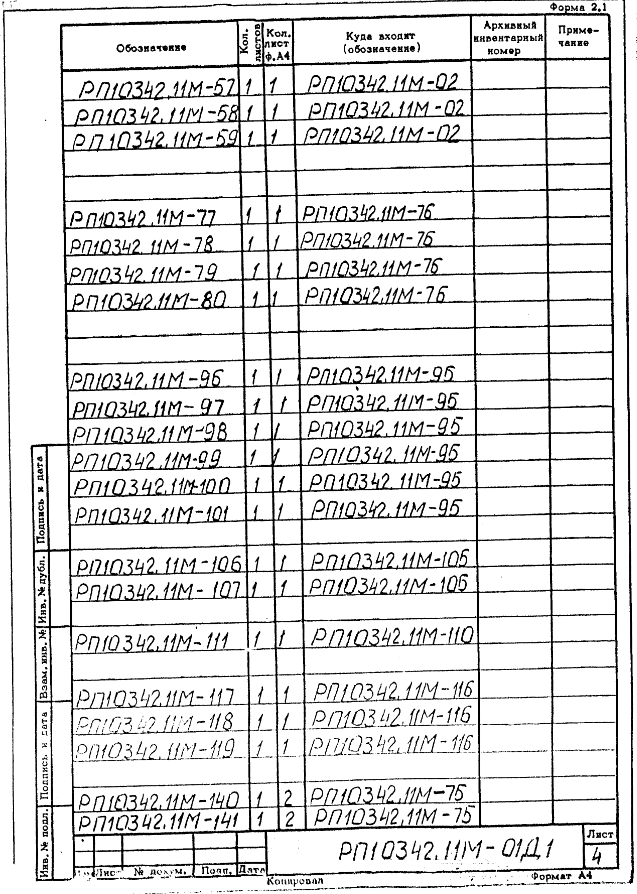 Форма 2.1
Обозначение Кол. листов Кол. лист ф.А4 Куда входит (обозначение) Архивный инвентарный номер Приме-чание
РП10342.11М-57 1 1 РП10342.11М-02
РП10342.11М-58 1 1 РП10342.11М-02
РП10342.11М-59 1 1 РП10342.11М-02
РП10342.11М-77 1 1 РП10342.11М-76
РП10342.11М-78 1 1 РП10342.11М-76
РП10342.11М-79 1 1 РП10342.11М-76
РП10342.11М-80 1 1 РП10342.11М-76
РП10342.11М-96 1 1 РП10342.11М-95
РП10342.11М-97 1 1 РП10342.11М-95
РП10342.11М-98 1 1 РП10342.11М-95
РП10342.11М-99 1 1 РП10342.11М-95
РП10342.11М-100 1 1 РП10342.11М-95
РП10342.11М-101 1 1 РП10342.11М-95
РП10342.11М-106 1 1 РП10342.11М-105
РП10342.11М-107 1 1 РП10342.11М-105
РП10342.11М-111 1 1 РП10342.11М-110
РП10342.11М-117 1 1 РП10342.11М-116
РП10342.11М-118 1 1 РП10342.11М-116
РП10342.11М-119 1 1 РП10342.11М-116
РП10342.11М-140 1 2 РП10342.11М-75
РП10342.11М-141 1 2 РП10342.11М-75
Подпись и дата
Инв. № дубл.
Взам. инв. №
Подпись и дата
Инв. № подл.
РП10342.11М-01Д1
Лист
4
Лист № докум. Подп. Дата
Копировал
Формат А4